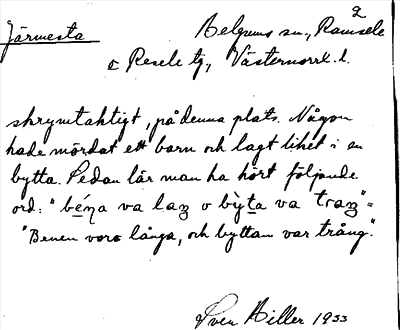 Järmesta
Belgums sn., Ramsele 2
o Resele tg, Västernorrl. l.
skrymtaktigt, på denna plats. Någon
hade mördat ett barn och lagt liket i en
bytta. Sedan lär man ha hört följande
ord: "béŋa va laŋ o bỳta va traŋ" =
"Benen voro långa, och byttan var trång".
Sven Hiller 1933